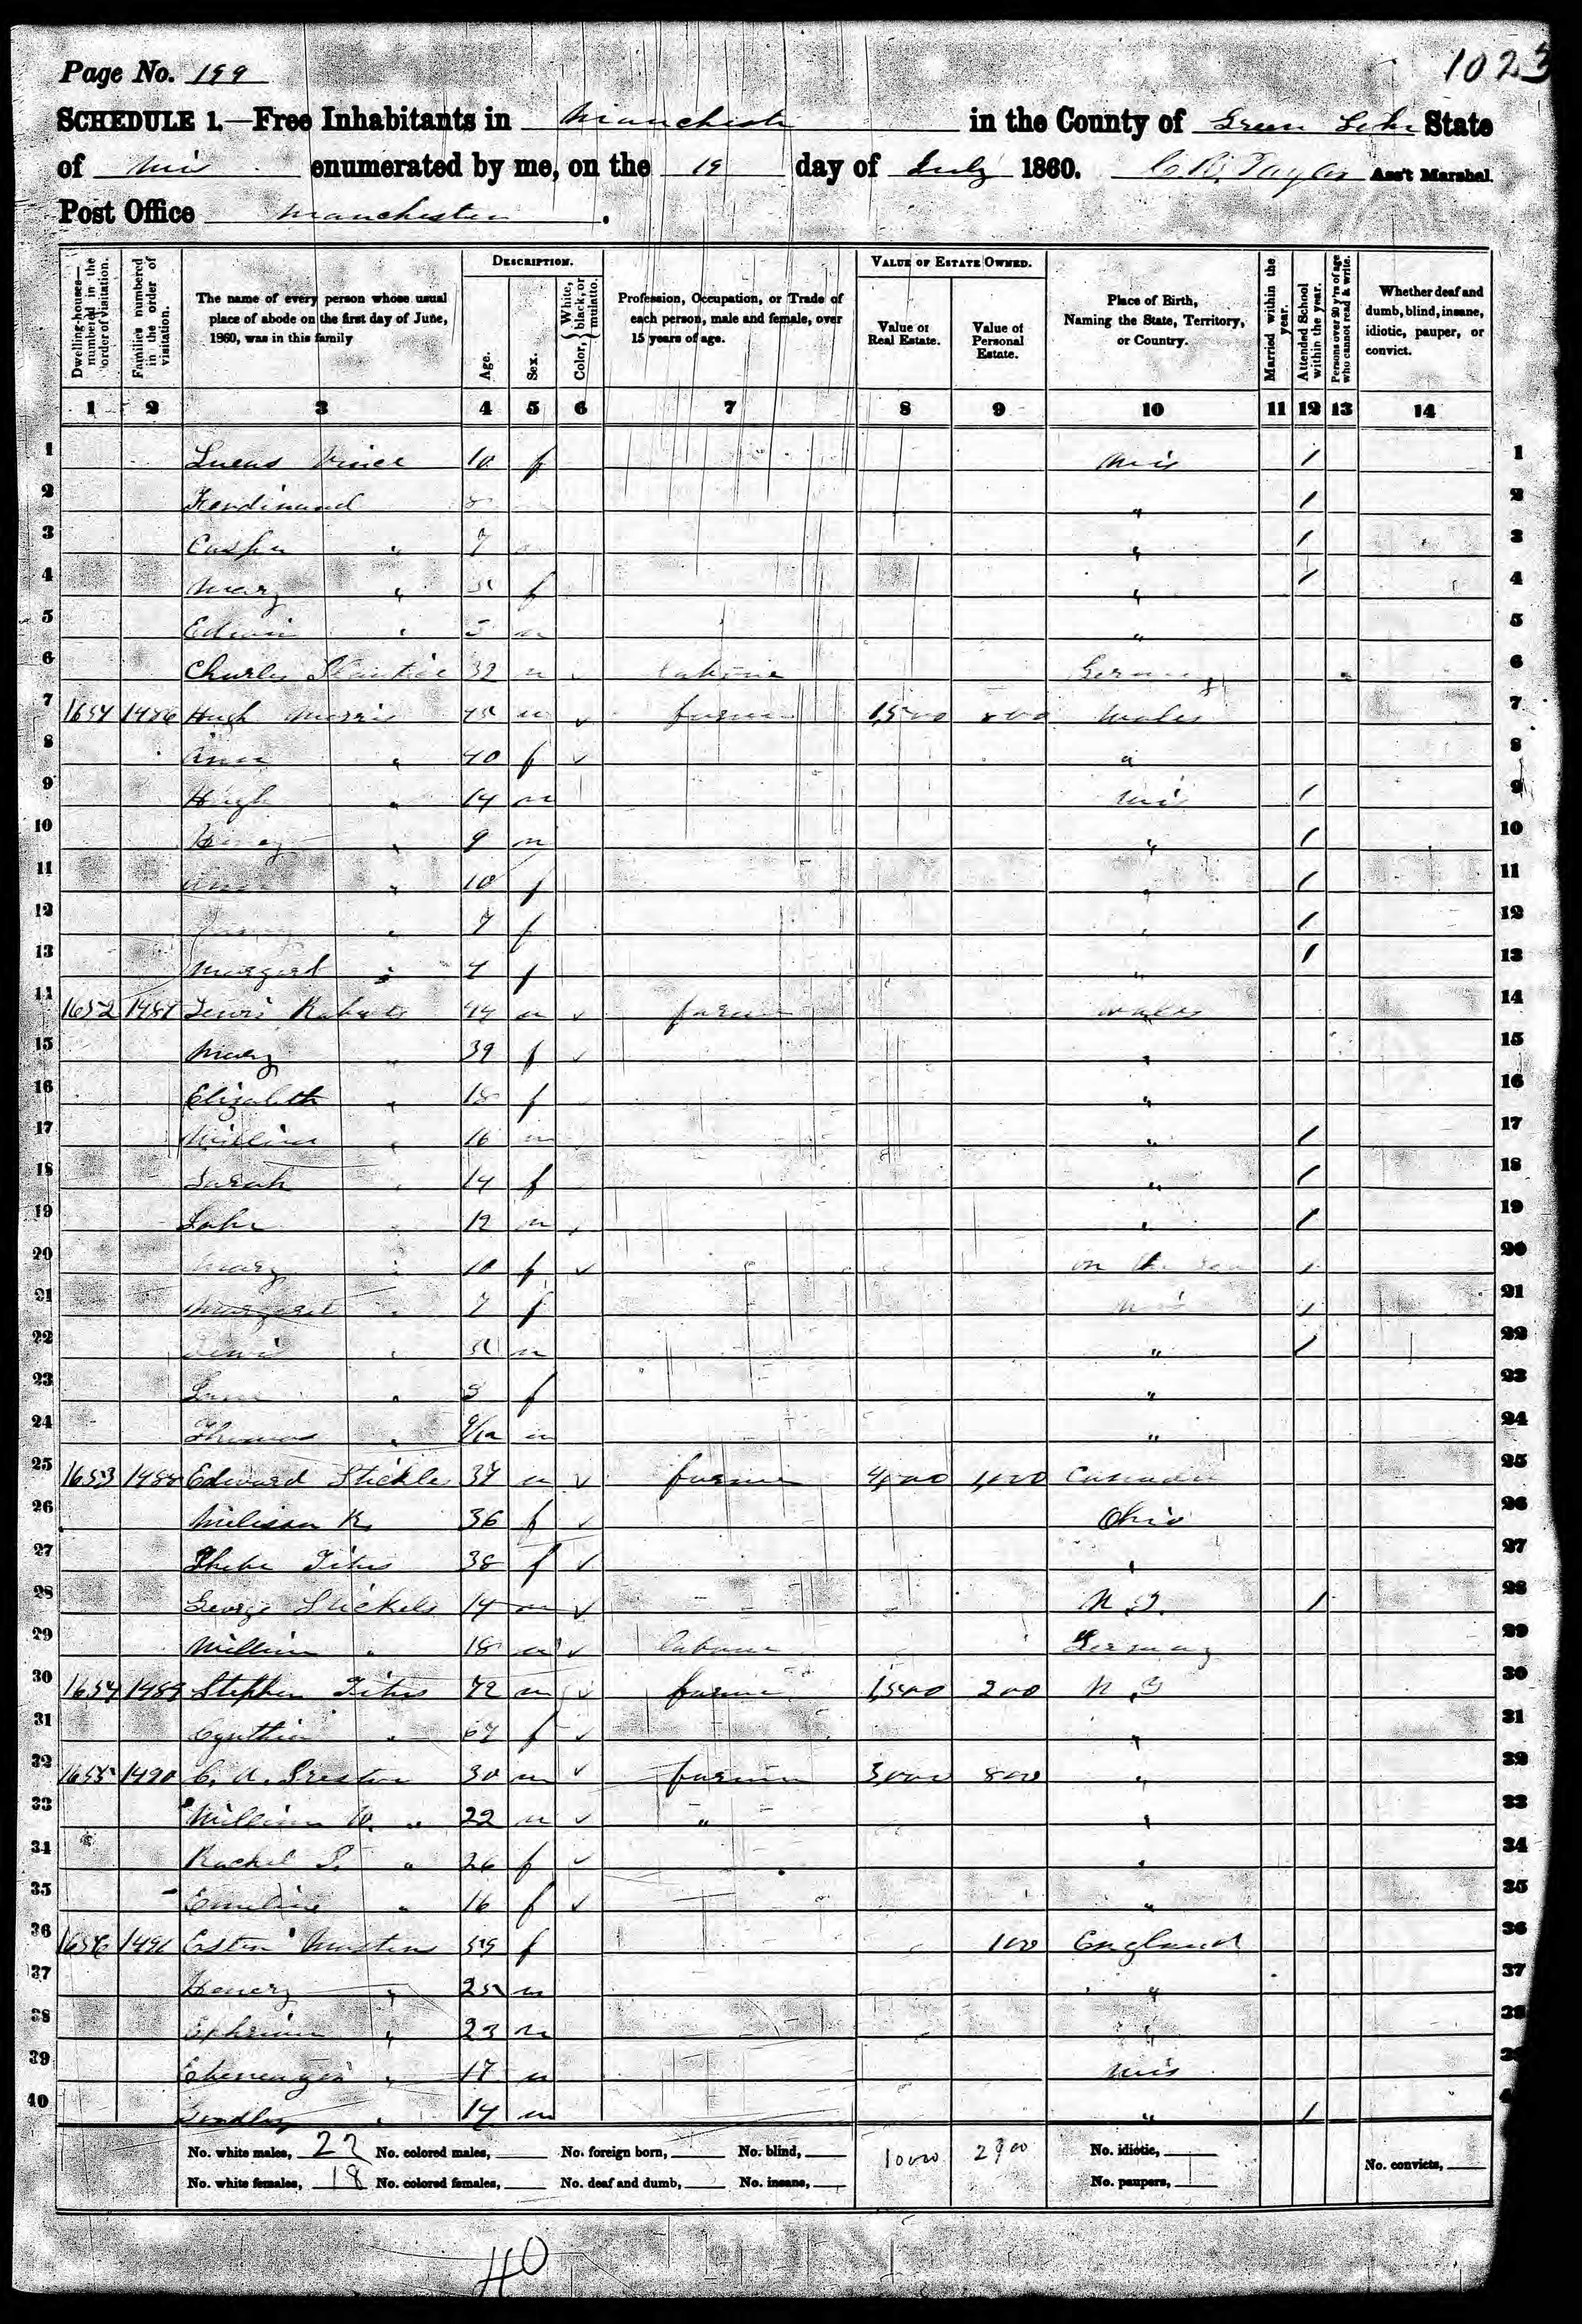 Page No. 199
1023
SCHEDULE 1.—Free Inhabitants in Manchester in the County of Green Lake State
of Wis enumerated by me, on the 19 day of July 1860. C. R. Taylor Ass't Marshal.
Post Office Manchester.
Dwelling-houses—numbered in the order of visitation.
Families numbered in the order of visitation.
The name of every person whose usual place of abode on the first day of June, 1860, was in this family
DESCRIPTION.
Age.
Sex.
Color, White, black, or mulatto.
Profession, Occupation, or Trade of each person, male and female, over 15 years of age.
VALUE OF ESTATE OWNED.
Value of Real Estate.
Value of Personal Estate.
Place of Birth, Naming the State, Territory, or Country.
Married within the year.
Attended School within the year.
Persons over 20 y'rs of age who cannot read & write.
Whether deaf and dumb, blind, insane, idiotic, pauper, or convict.
1 2 3 4 5 6 7 8 9 10 11 12 13 14
1 10 f Wis / 1
2 Ferdinand " / 2
3 Casper " 7 " / 3
4 Mary " f " / 4
5 Edwin " m " 5
6 Charles 32 m labour Germany 6
7 Hugh Morris 45 m ✓ farmer 1,500 800 Wales 7
8 Ann " 40 f ✓ " 8
9 Hugh " 14 m Wis / 9
10 Henry " 9 m " / 10
11 Ann " 10 f " / 11
12 " 7 f " / 12
13 Margaret " f " / 13
14 1652 1487 Lewis Roberts 44 m ✓ farmer Wales 14
15 Mary " 39 f ✓ " 15
16 Elizabeth " 18 f " 16
17 William " 16 m " / 17
18 Sarah " 14 f " / 18
19 John " 12 m " / 19
20 Mary " 10 f ✓ on the sea / 20
21 Margaret " 7 f Wis / 21
22 Lewis " m " / 22
23 " 3 f " 23
24 Thomas " 9/12 m " 24
25 1653 1488 Edward Stickles 37 m ✓ farmer 4,000 1,000 Canada 25
26 Melissa R. 36 f ✓ Ohio 26
27 Phebe Titus 38 f ✓ " 27
28 George Stickels 14 m ✓ N.Y. / 28
29 William " 18 m ✓ labour Germany 29
30 1654 1489 Stephen Titus 72 m ✓ farmer 1,500 200 N.Y 30
31 Cynthia " 67 f ✓ " 31
32 1655 1490 C. A. Preston 30 m ✓ farmer 3,000 800 " 32
33 William W. " 22 m ✓ " " 33
34 Rachel P. " 26 f ✓ " 34
35 Emeline " 16 f ✓ " 35
36 1656 1491 f 100 England 36
37 Henery " 25 m " 37
38 Ephriam " 23 m " 38
39 " 17 m Wis
40 " 14 m " /
No. white males, 22 No. colored males, No. foreign born, No. blind, 10000 2900 No. idiotic,
No. white females, 18 No. colored females, No. deaf and dumb, No. insane, No. paupers, No. convicts,
40